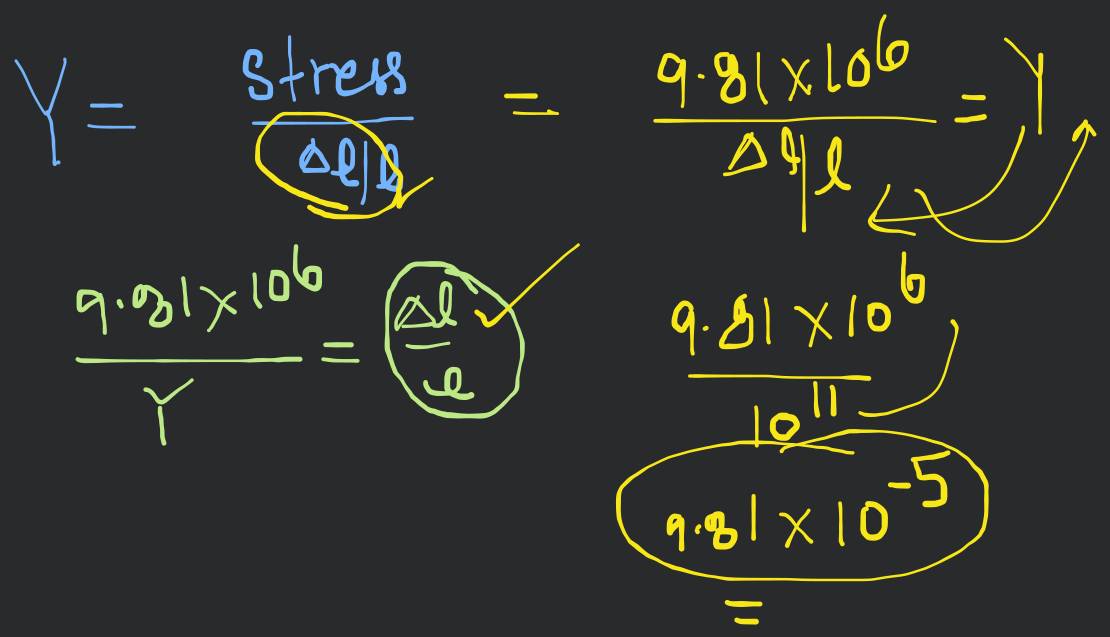 Y = stress / Δl/l = 9.81 × 10^6 / Δl/l = Y
9.81 × 10^6 / Y = Δl / l
9.81 × 10^6 / 10^11
9.81 × 10^-5
=